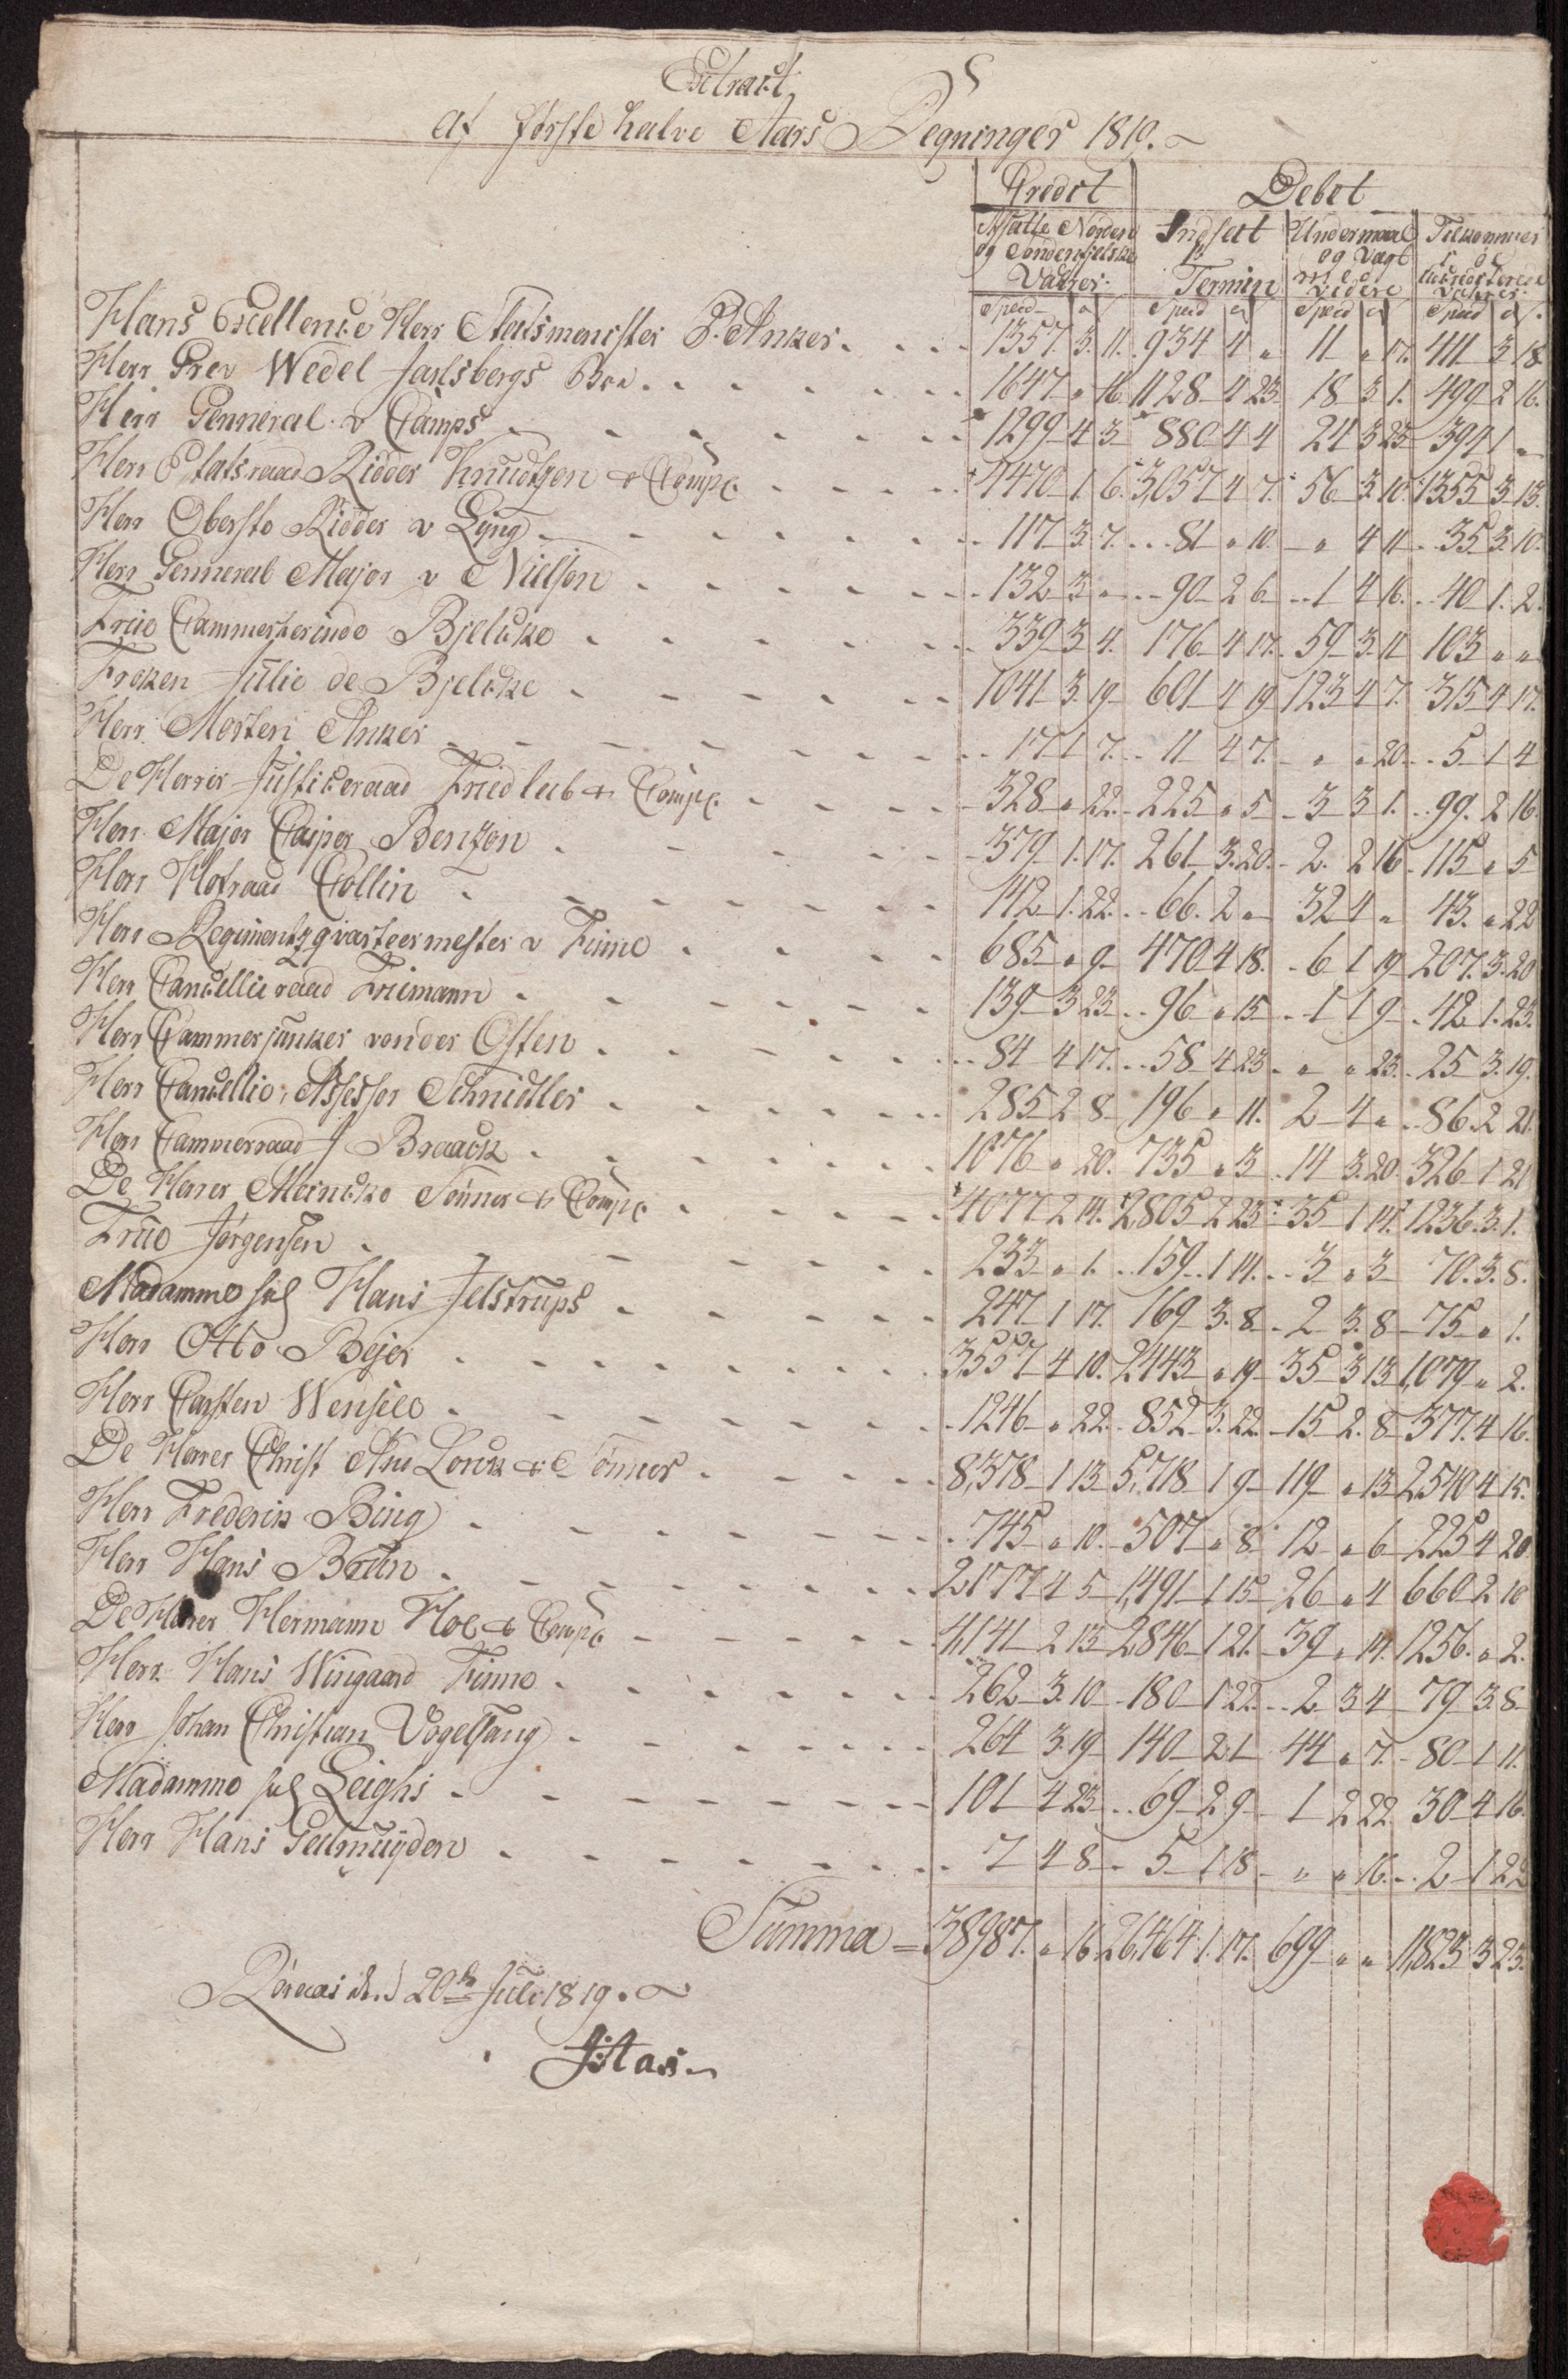 Extract
af første halve Aars Regninger 1819.
Credit Debet
Afsatte Norden og Søndenfjelske Varer. Indsatt pr Termin Undermaal og Vægt med videre Tilkommer
Specd Specd Specd Specd
Hans Excellence Herr Statsminister P. Anker. 1357. 3. 11. 934 4 " 11 " 17. 411 3 18
Herr Grev Wedel Jarlsbergs Boe. 1647 " 16. 1128 4 23 18 3 1. 499 2 16.
Herr Genneral v Camps 1299 4 3 880 4 4 24 3 23 394 1 "
Herr Etatsraad Ridder Knudtzon & Compe. 4470 1 6. 3,057 4 7. 56 3. 10. 1355 3 13.
Herr Oberste Ridder v Lyng 117 3 7. 81 " 10. " 4 11. 35 3. 10.
Herr Genneral Major v Nielson 132 3 " 90 2 6 1 4 16. 40 1. 2.
Frue Cammerherinde Bjelcke 339 3 4. 176 4 17. 59 3. 11 103 " "
Frøken Julie de Bjelcke 1041 3. 19 601 4 19 123 4 7. 315 4 17.
Herr Morten Anker 17 1 7. 11 4 7. " " 20. 5 1 4
De Herrer Justiceraad Friedlieb & Compe. 328 " 22. 225 " 5 3 3 1. 99. 2 16.
Herr Major Casper Bentzon 379 1. 17. 261 3. 20. 2. 2 16 115 " 5
Herr Hofraad Collin 142 1. 22. 66. 2 " 32 4 " 43. " 22
Herr Regimentzqvarteermester v Finne 685 " 9 470 4 18. 6 1 19 207. 3. 20
Herr Cancellieraad Friimann 139 3 23 96 " 15 1 1 9 42 1. 23.
Herr Cammerjunker vonder Osten 84 4 17. 58 4 23 " " 23. 25 3. 19.
Herr Cancellie, Assessor Schnidtler 285 2 8 196 " 11. 2 4 " 86. 2 21.
Herr Cammerraad J Braack 1076 " 20. 735 " 3 14 3. 20. 326 1 21
De Herrer Meincke Sønner & Compe 4077 2 14. 2,805 2 23 35 1 14. 1236. 3. 1.
Frue Jørgensen 233 " 1. 159 1 14. 3 " 3 70. 3. 8.
Madamme sal Hans Jelstrups 247 1 17. 169 3. 8. 2 3. 8 75 " 1.
Herr Otto Bejer 3,557 4 10. 2443 " 19 35 3 13 1,079 " 2.
Herr Carsten Wensell 1246 " 22. 852 3. 22. 15 2. 8 377. 4 16.
De Herrer Christ Aug Lorck & Sønner 8,378 1 13 5,718 1 9 119 " 13 2,540 4 15.
Herr Frederik Bing 745 " 10. 507 " 8. 12 " 6 225 4 20
Herr Hans Bruun 2177 4 5 1,491 1 15 26 " 4 660 2 10
De Herrer Hermann Hoe & Compe 4,141 2 13 2846 1 21. 39 " 14. 1256. " 2.
Herr Hans Wingaard Finne 262 3. 10 180 1 22. 2 3 4 79 3. 8
Herr Johan Christian Vogelsang 264 3. 19 140 2 1 44 " 7. 80 1 11.
Madamme sal Leighs 101 4 23 69 2 9 1 2 22. 30 4 16.
Herr Hans Gelmuÿden 7 4 8 5 1 18 " " 16. 2 1 22
Summa = 38987. " 16 26,464 1. 17. 699 " " 11,823 3 23.
Röraas d. 20de Juli 1819.